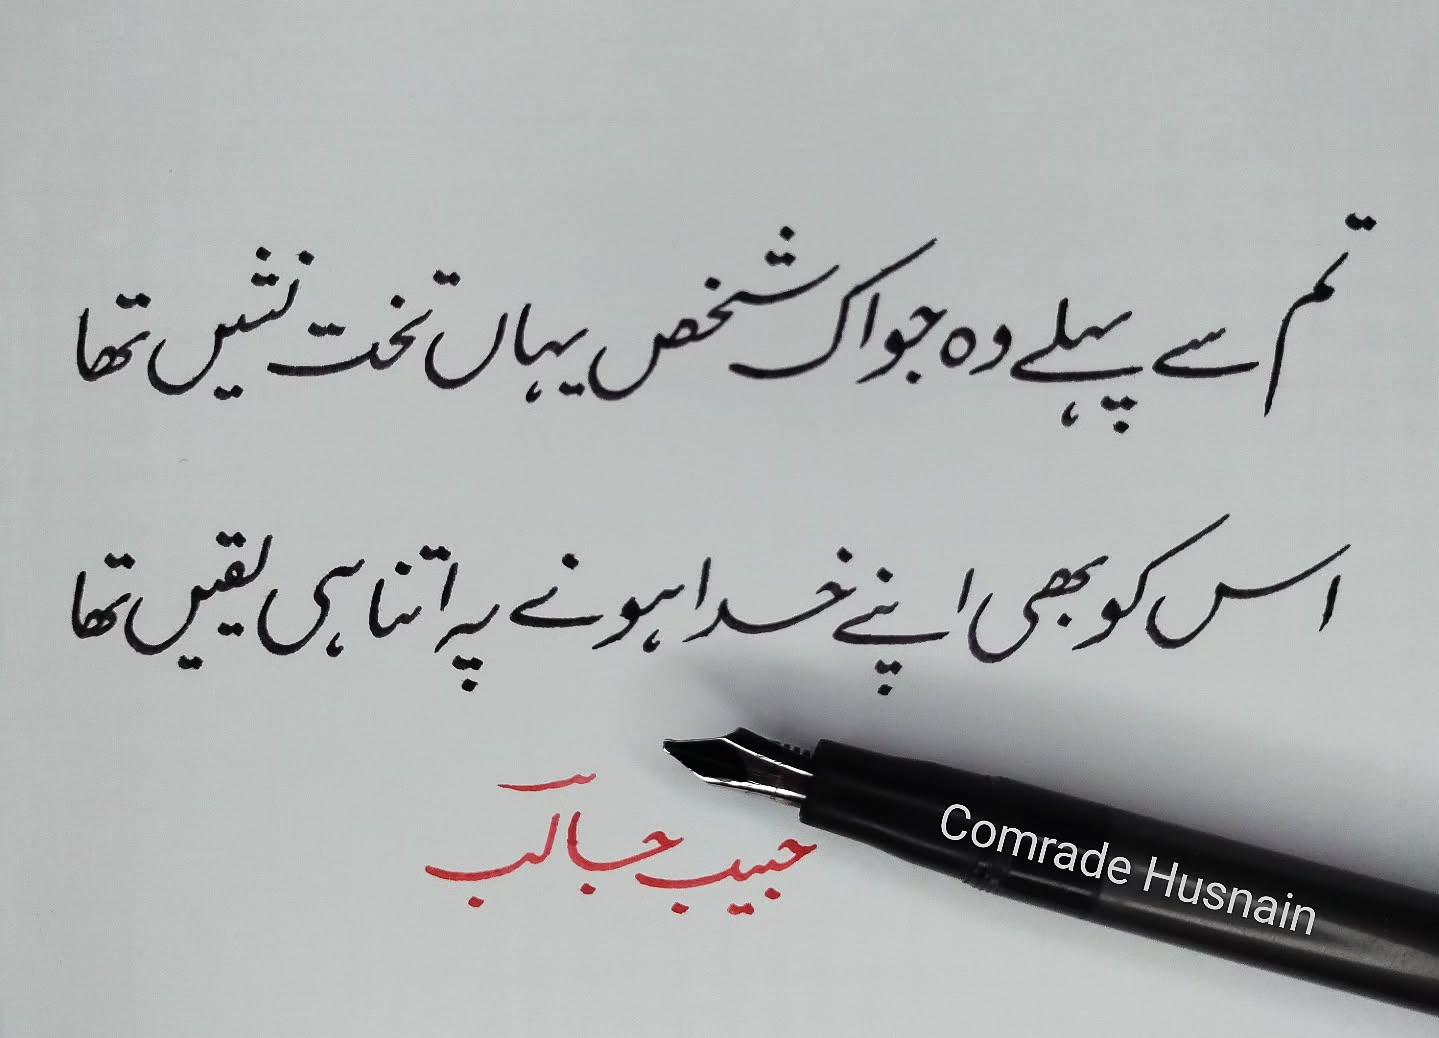 تم سے پہلے وہ جو اک شخص یہاں تخت نشیں تھا
اس کو بھی اپنے خدا ہونے پہ اتنا ہی یقیں تھا
حبیب جالب
Comrade Husnain